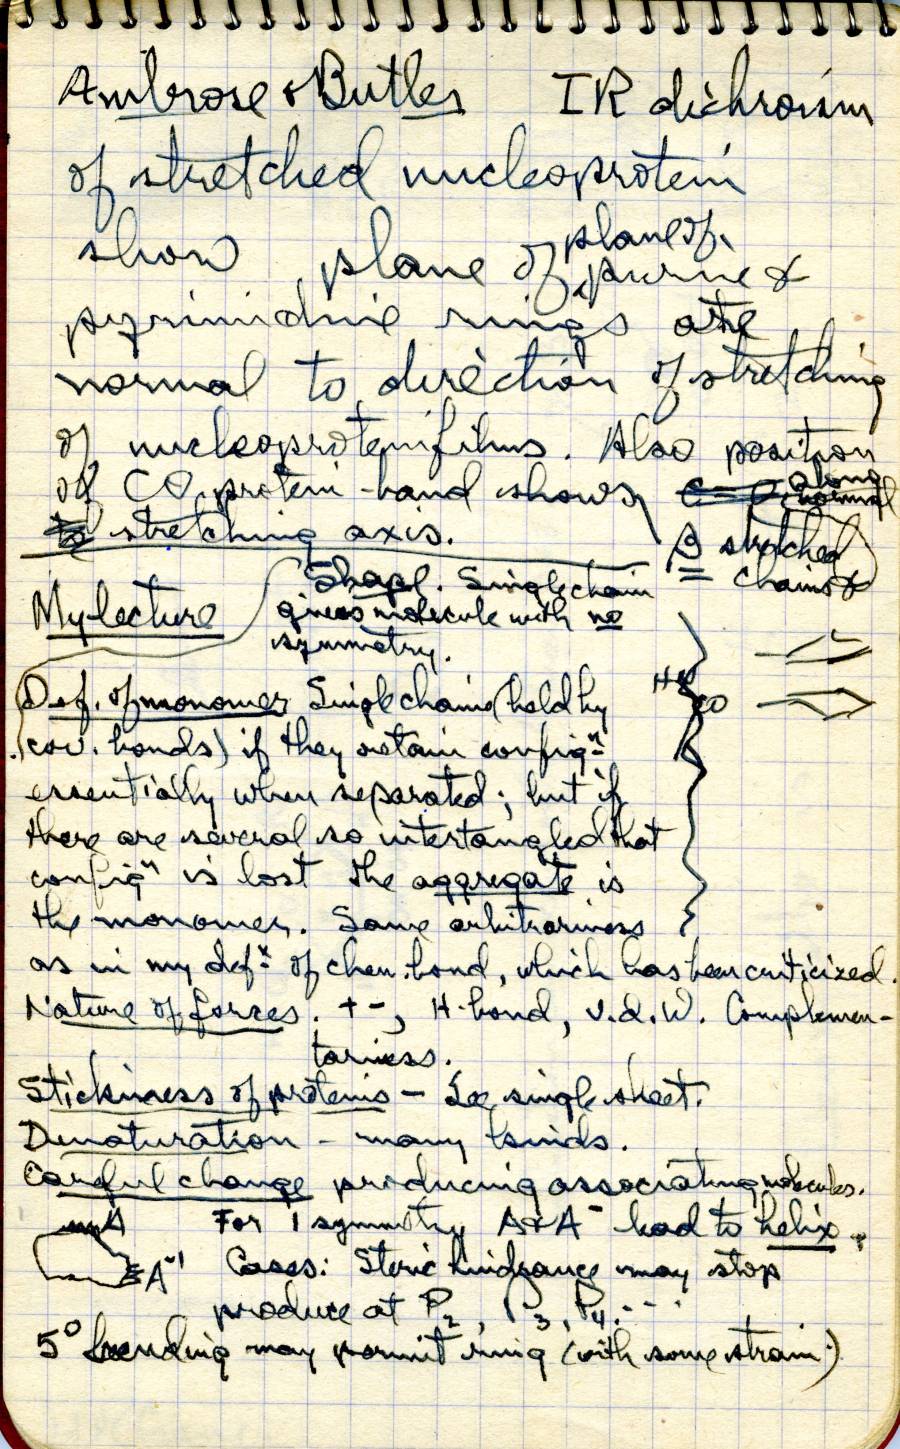 Ambrose & Butler IR dichroism
of stretched nucleoprotein
show plane of plane of purine &
pyrimidine rings are
normal to direction of stretching
of nucleoprotein films. Also position
of CO protein band shows along normal
stretching axis.
β stretched
chains &
My lecture
Shape. Single chain
gives molecule with no
symmetry.
Def. of monomer Single chains (held by
cov. bonds) if they retain configⁿ
essentially when separated; but if
there are several so intertangled that
configⁿ is lost the aggregate is
the monomer. Same arbitrariness
as in my defⁿ of chem. bond, which has been criticized.
CO
Nature of forces. + -, H-bond, v.d.W. Complemen-
tariness.
Stickiness of proteins - See single sheet.
Denaturation - many kinds.
Careful change producing associating molecules.
A For 1 symmetry A & A⁻¹ lead to helix.
A⁻¹ Cases: Steric hindrance may stop
produce at P₂, P₃, P₄. - -
5° bending may permit ring (with some strain.)